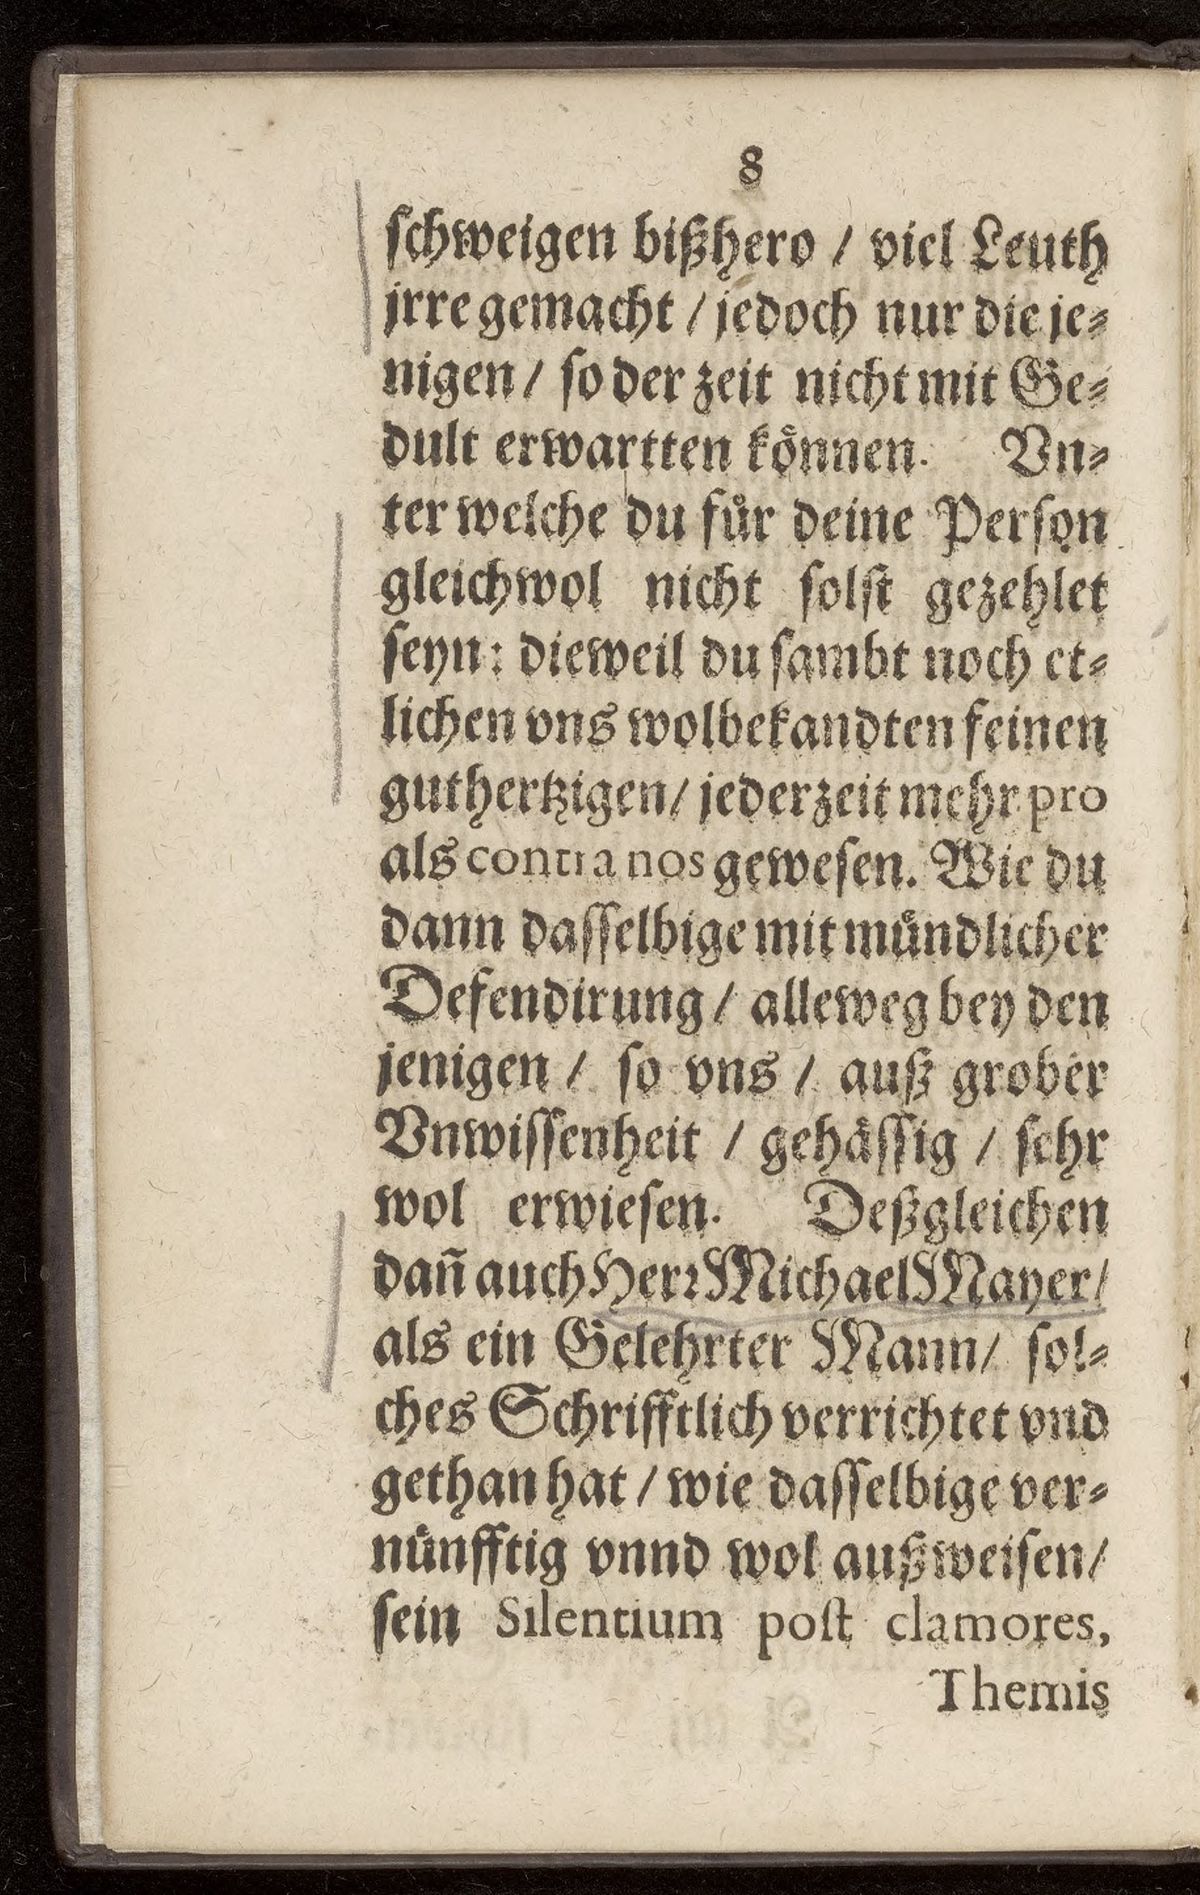 8
schweigen bißhero / viel Leuth
jrre gemacht / jedoch nur die je-
nigen / so der zeit nicht mit Ge-
dult erwartten koͤnnen. Vn-
ter welche du fuͤr deine Person
gleichwol nicht solst gezehlet
seyn: dieweil du sambt noch et-
lichen vns wolbekandten feinen
guthertzigen / jederzeit mehr pro
als contra nos gewesen. Wie du
dann dasselbige mit muͤndlicher
Defendirung / alleweg bey den
jenigen / so vns / auß grober
Vnwissenheit / gehaͤssig / sehr
wol erwiesen. Deßgleichen
dañ auch Herr Michael Mayer /
als ein Gelehrter Mann / sol-
ches Schrifftlich verrichtet vnd
gethan hat / wie dasselbige ver-
nuͤnfftig vnnd wol außweisen /
sein Silentium post clamores,
Themis